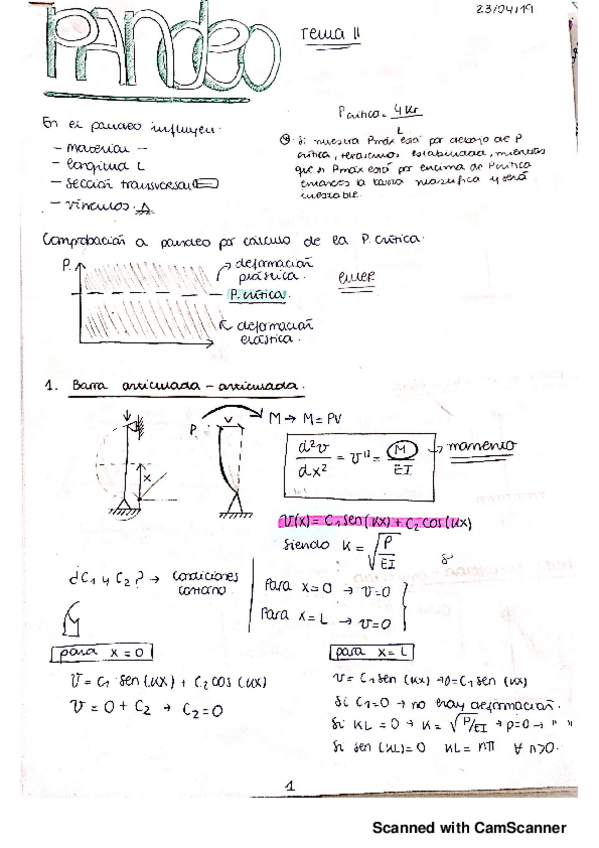 23/04/19
PANdeo
Tema 11
En el pandeo influyen:
- material -
- longitud L
- sección transversal
- vínculos.
Pcrítica = 4Kr
L
Si nuestra Pmáx está por debajo de P
crítica, tenemos estabilidad, mientras
que si Pmáx está por encima de Pcrítica
entonces la barra plastifica y será
inestable.
Comprobación a pandeo por cálculo de la P.crítica.
P.
deformación
plástica.
P.crítica.
deformación
elástica.
EULER
1. Barra articulada - articulada.
P.
V
M → M = PV
x
d²v
dx²
= v'' = M
EI
→ momento
v(x) = C1 sen(kx) + C2 cos(kx)
Siendo K = √P
EI
¿C1 y C2? → condiciones
contorno
Para x=0 → v=0
Para x=L → v=0
para x=0
v = C1 sen(kx) + C2 cos(kx)
v = 0 + C2 → C2=0
para x=L
v = C1 sen(kx) → 0=C1 sen(kx)
Si C1=0 → no hay deformación.
Si KL = 0 → K = √P/EI → p=0 → " "
Si sen(KL)=0 KL = nπ ∀ n>0.
1
Scanned with CamScanner